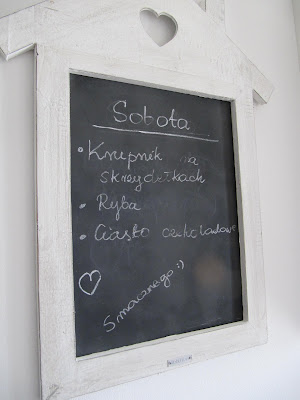 Sobota
• Krupnik na
skrzydełkach
• Ryba
• Ciasto czekoladowe
Smacznego :)